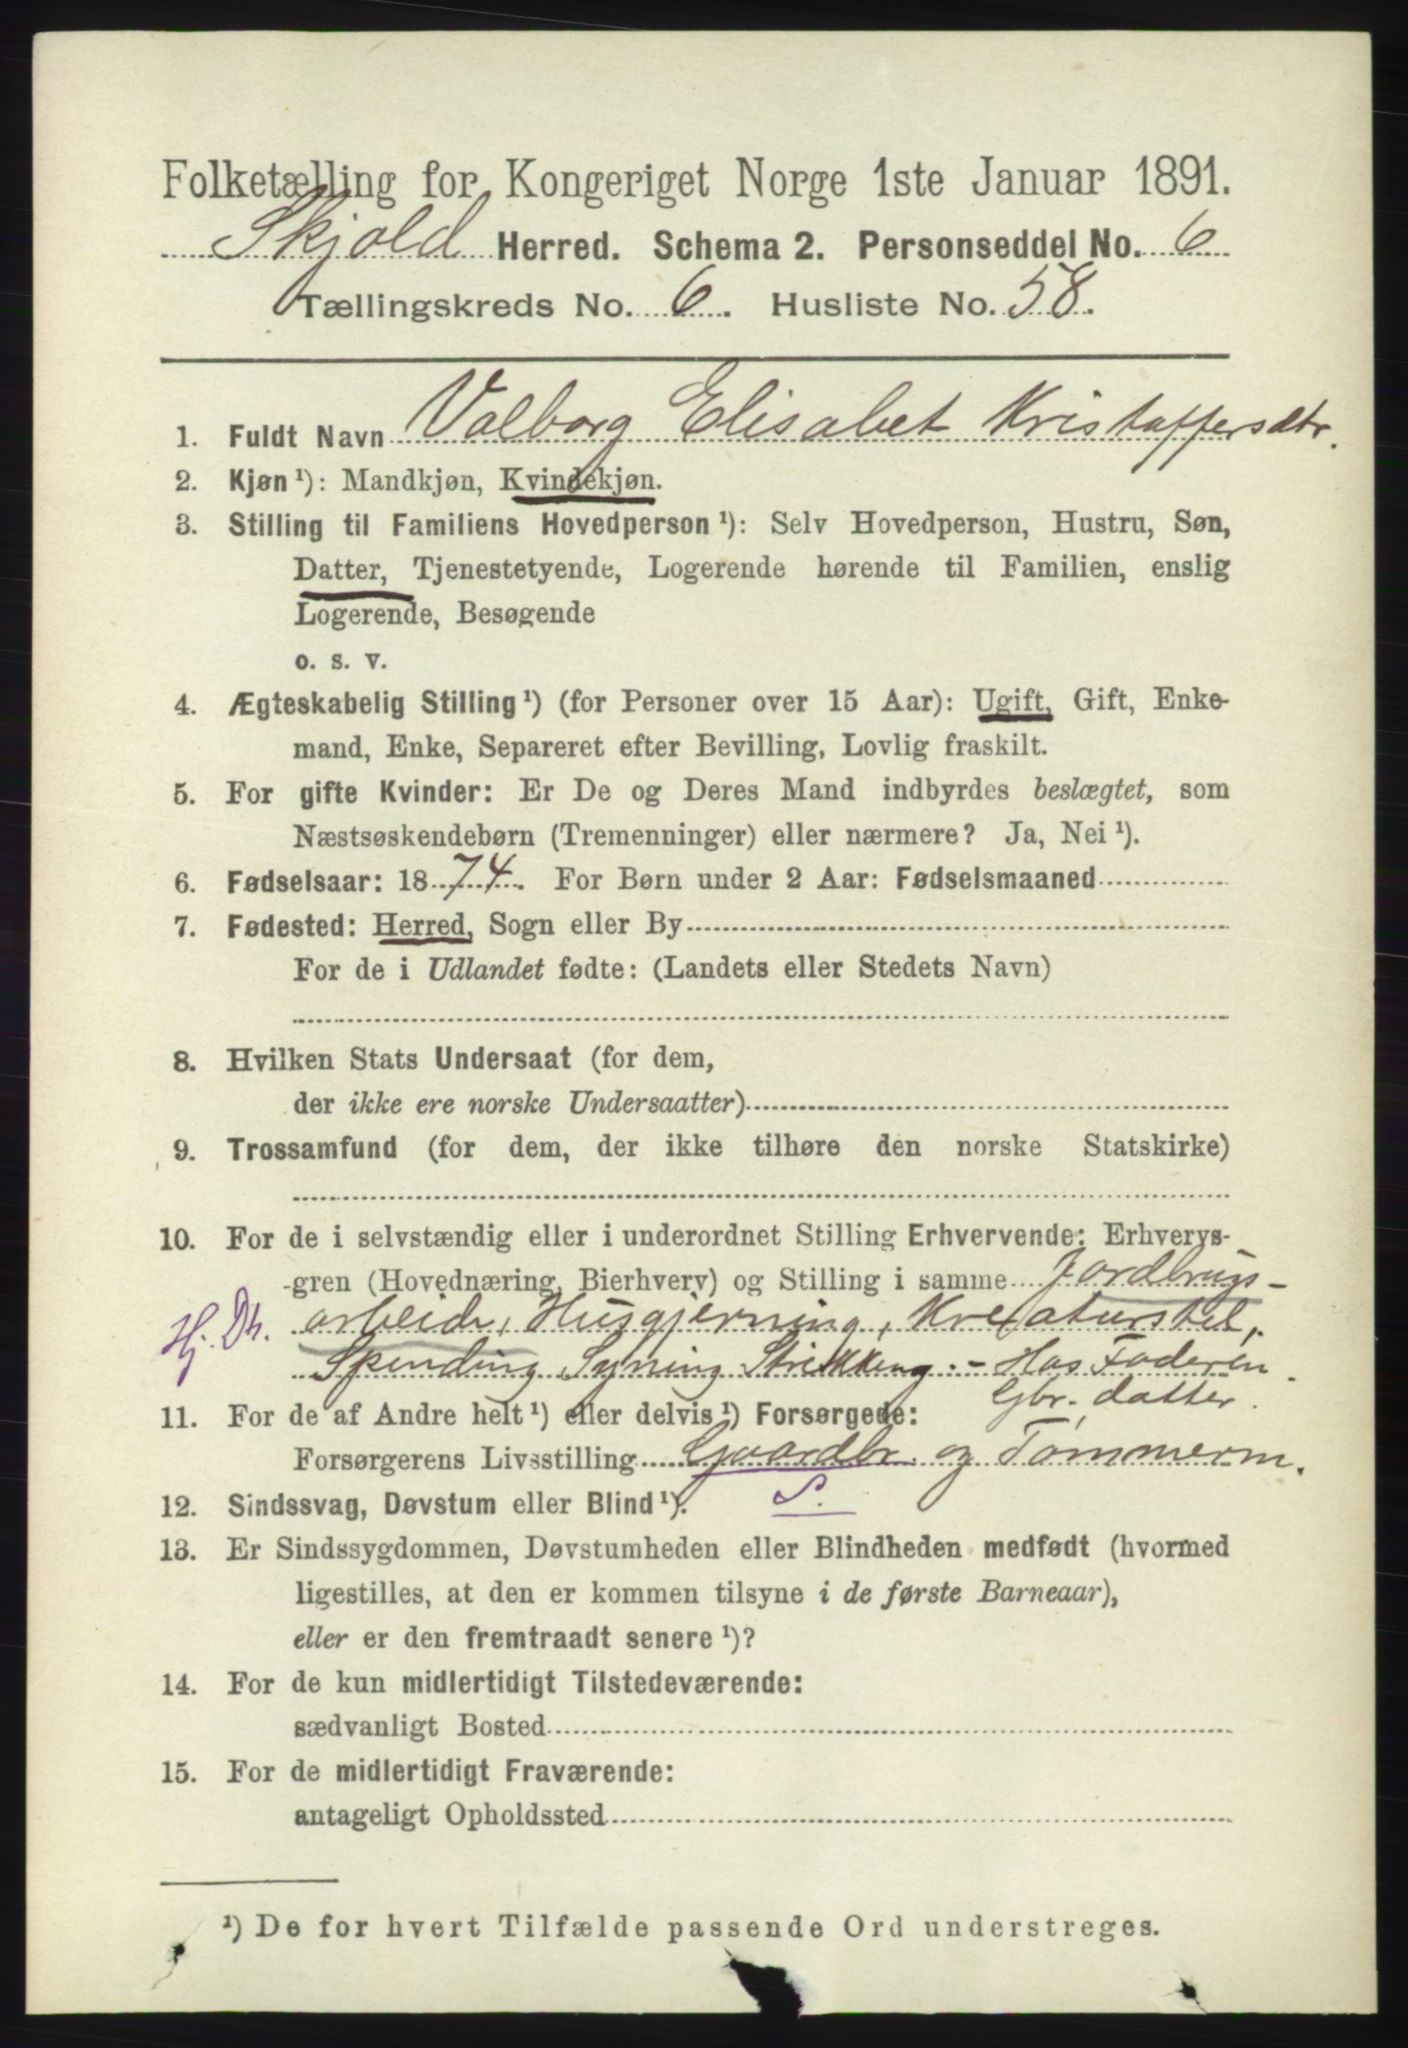 Folketælling for Kongeriget Norge 1ste Januar 1891.
Skjold Herred. Schema 2. Personseddel No. 6
Tællingskreds No. 6. Husliste No. 58.
1. Fuldt Navn Valborg Elisabet Kristaffersdtr.
2. Kjøn ¹): Mandkjøn, Kvindekjøn.
3. Stilling til Familiens Hovedperson ¹): Selv Hovedperson, Hustru, Søn,
Datter, Tjenestetyende, Logerende hørende til Familien, enslig
Logerende, Besøgende
o. s. v.
4. Ægteskabelig Stilling ¹) (for Personer over 15 Aar): Ugift, Gift, Enke-
mand, Enke, Separeret efter Bevilling, Lovlig fraskilt.
5. For gifte Kvinder: Er De og Deres Mand indbyrdes beslægtet, som
Næstsøskendebørn (Tremenninger) eller nærmere? Ja, Nei ¹).
6. Fødselsaar: 1874. For Børn under 2 Aar: Fødselsmaaned
7. Fødested: Herred, Sogn eller By
For de i Udlandet fødte: (Landets eller Stedets Navn)
8. Hvilken Stats Undersaat (for dem,
der ikke ere norske Undersaatter)
9. Trossamfund (for dem, der ikke tilhøre den norske Statskirke)
10. For de i selvstændig eller i underordnet Stilling Erhvervende: Erhvervs-
gren (Hovednæring, Bierhverv) og Stilling i samme Jordbrugs-
Hj. Dt. arbeide, Husgjerning, Kreaturstel,
Spinding, Syning Strikking. - Hos Faderen
Gbr. datter.
11. For de af Andre helt ¹) eller delvis ¹) Forsørgede:
Forsørgerens Livsstilling Gaardbr. og Tømmerm.
12. Sindssvag, Døvstum eller Blind ¹). S.
13. Er Sindssygdommen, Døvstumheden eller Blindheden medfødt (hvormed
ligestilles, at den er kommen tilsyne i de første Barneaar),
eller er den fremtraadt senere ¹)?
14. For de kun midlertidigt Tilstedeværende:
sædvanligt Bosted
15. For de midlertidigt Fraværende:
antageligt Opholdssted
¹) De for hvert Tilfælde passende Ord understreges.